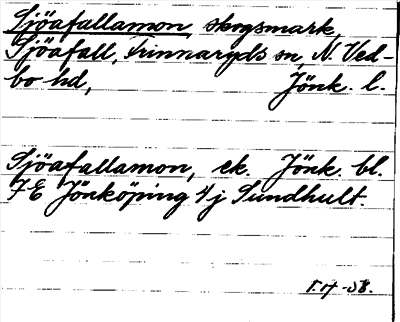 Sjöafallamon, skogsmark,
Sjöafall, Frinnaryds sn, N. Ved-
bo hd, Jönk. l.
Sjöafallamon, ek. Jönk. bl.
7E Jönköping 4j Sundhult.